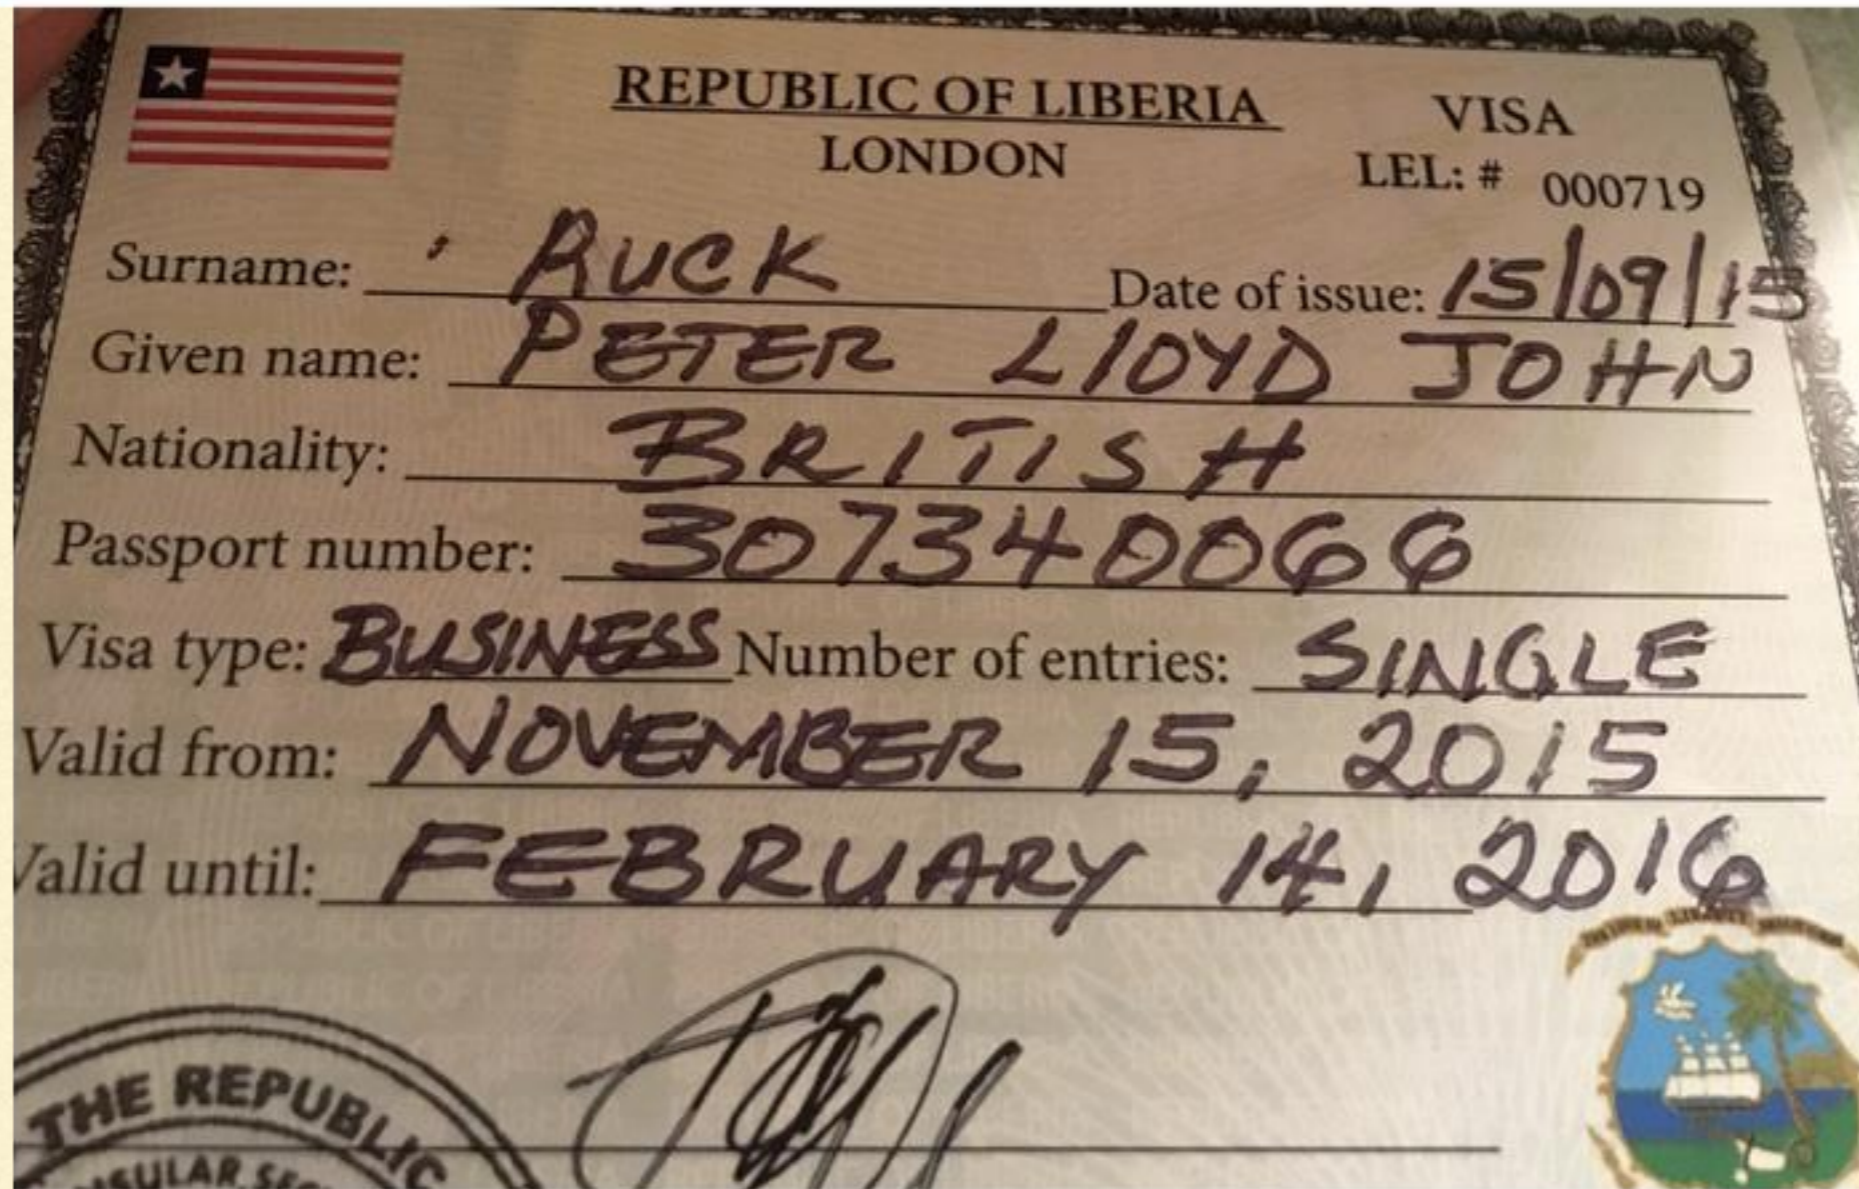 REPUBLIC OF LIBERIA
LONDON
VISA
LEL: # 000719
Surname: RUCK Date of issue: 15/09/15
Given name: PETER LLOYD JOHN
Nationality: BRITISH
Passport number: 307340066
Visa type: BUSINESS Number of entries: SINGLE
Valid from: NOVEMBER 15, 2015
Valid until: FEBRUARY 14, 2016
THE REPUBLIC